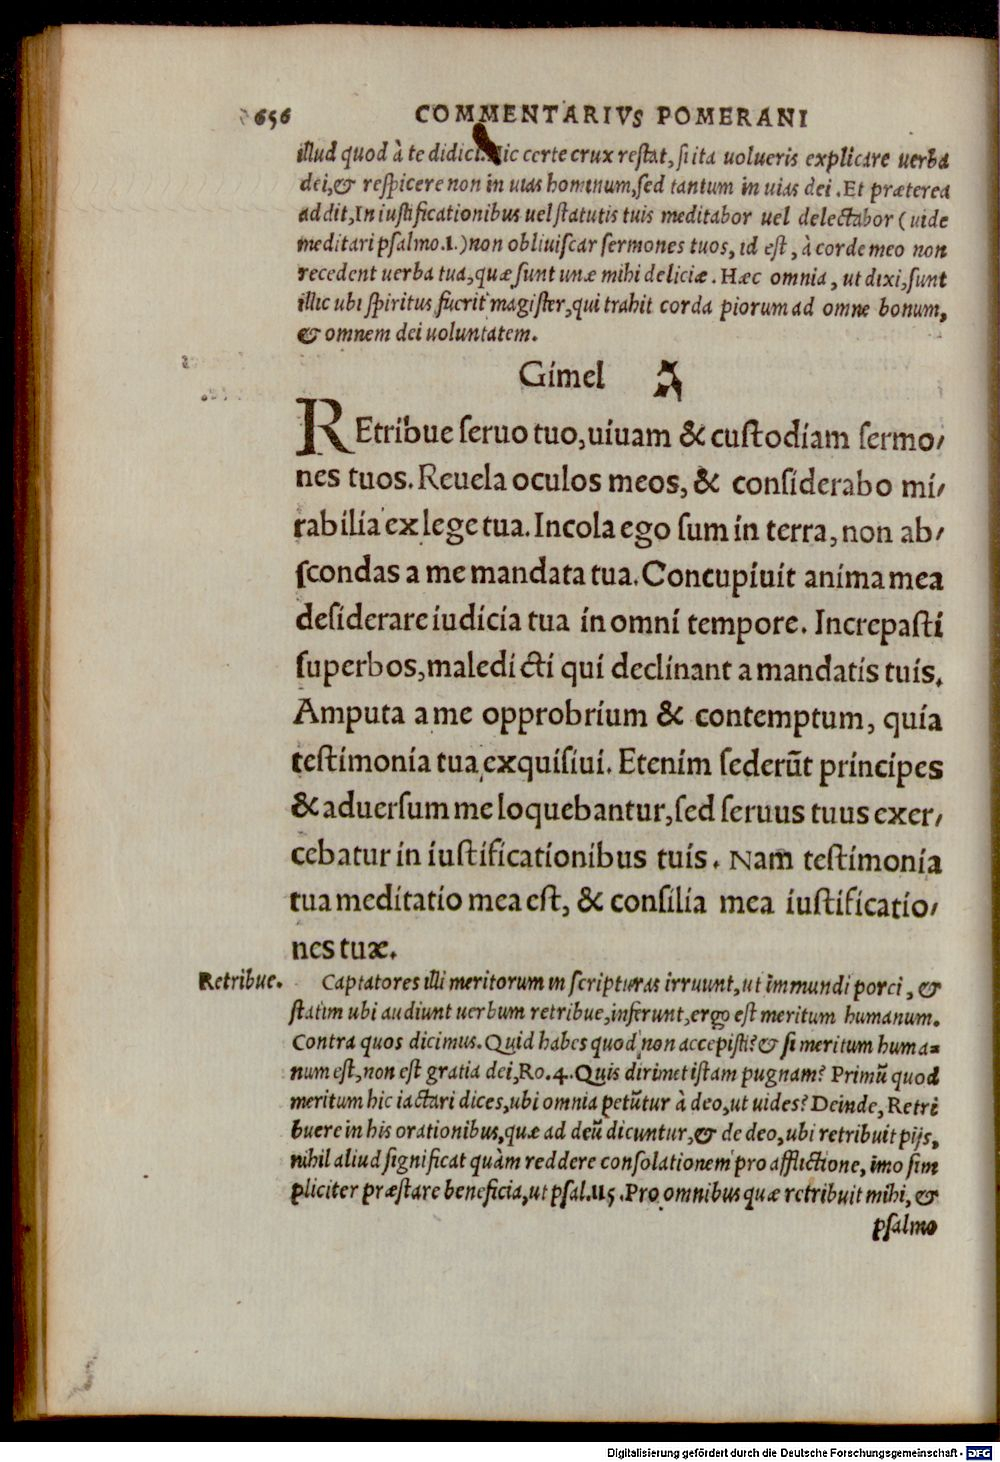 656 COMMENTARIVS POMERANI
illud quod à te didici. Hic certe crux restat, si ita uolueris explicare uerba
dei, & respicere non in uias hominum, sed tantum in uias dei. Et præterea
addit, In iustificationibus uel statutis tuis meditabor uel delectabor (uide
meditari psalmo. 1.) non obliuiscar sermones tuos, id est, à corde meo non
recedent uerba tua, quæ sunt unæ mihi deliciæ. Hæc omnia, ut dixi, sunt
illic ubi spiritus fuerit magister, qui trahit corda piorum ad omne bonum,
& omnem dei uoluntatem.
Gimel ג
REtribue seruo tuo, uiuam & custodiam sermo/
nes tuos. Reuela oculos meos, & considerabo mi/
rabilia ex lege tua. Incola ego sum in terra, non ab/
scondas a me mandata tua. Concupiuit anima mea
desiderare iudicia tua in omni tempore. Increpasti
superbos, maledicti qui declinant a mandatis tuis.
Amputa a me opprobrium & contemptum, quia
testimonia tua exquisiui. Etenim sederūt principes
& aduersum me loquebantur, sed seruus tuus exer/
cebatur in iustificationibus tuis. Nam testimonia
tua meditatio mea est, & consilia mea iustificatio/
nes tuæ.
Retribue. Captatores illi meritorum in scripturas irruunt, ut immundi porci, &
statim ubi audiunt uerbum retribue, inferunt, ergo est meritum humanum.
Contra quos dicimus. Quid habes quod non accepisti? & si meritum huma=
num est, non est gratia dei, Ro. 4. Quis dirimet istam pugnam? Primū quod
meritum hic iactari dices, ubi omnia petūtur à deo, ut uides? Deinde, Retri
buere in his orationibus, quæ ad deū dicuntur, & de deo, ubi retribuit pijs,
nihil aliud significat quàm reddere consolationem pro afflictione, imo sim
pliciter præstare beneficia, ut psal. 115. Pro omnibus quæ retribuit mihi, &
psalmo
Digitalisierung gefördert durch die Deutsche Forschungsgemeinschaft - DFG